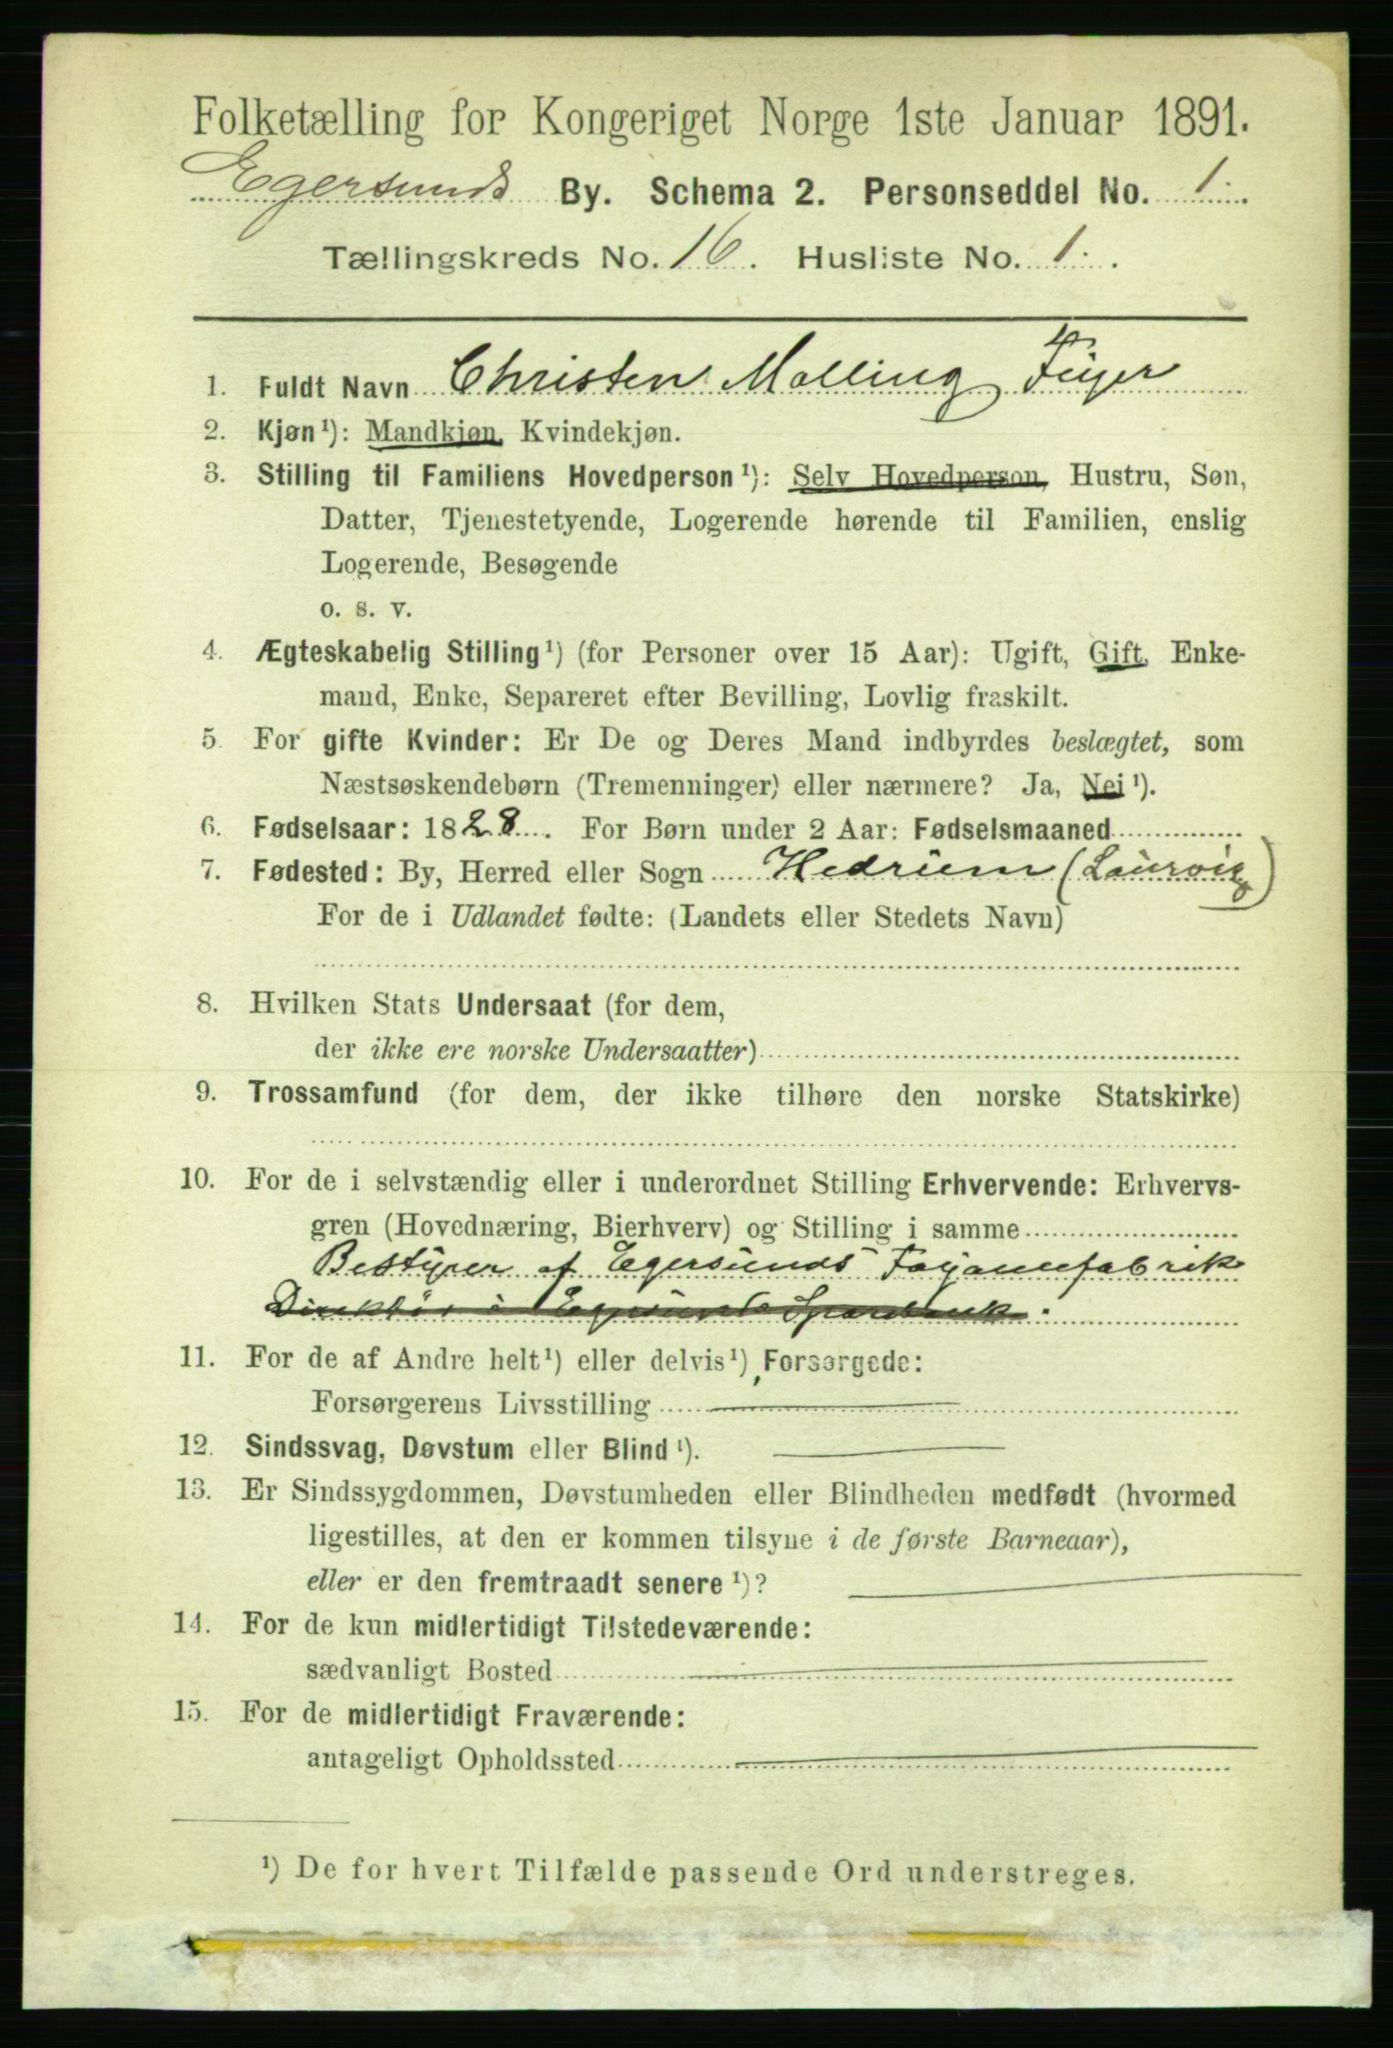 Folketælling for Kongeriget Norge 1ste Januar 1891.
Egersunds By. Schema 2. Personseddel No. 1.
Tællingskreds No. 16. Husliste No. 1.
1. Fuldt Navn Christen Malling Feyer
2. Kjøn¹): Mandkjøn, Kvindekjøn.
3. Stilling til Familiens Hovedperson¹): Selv Hovedperson, Hustru, Søn,
Datter, Tjenestetyende, Logerende hørende til Familien, enslig
Logerende, Besøgende
o. s. v.
4. Ægteskabelig Stilling¹) (for Personer over 15 Aar): Ugift, Gift, Enke-
mand, Enke, Separeret efter Bevilling, Lovlig fraskilt.
5. For gifte Kvinder: Er De og Deres Mand indbyrdes beslægtet, som
Næstsøskendebørn (Tremenninger) eller nærmere? Ja, Nei¹).
6. Fødselsaar: 1828. For Børn under 2 Aar: Fødselsmaaned
7. Fødested: By, Herred eller Sogn Hedrum (Laurvig)
For de i Udlandet fødte: (Landets eller Stedets Navn)
8. Hvilken Stats Undersaat (for dem,
der ikke ere norske Undersaatter)
9. Trossamfund (for dem, der ikke tilhøre den norske Statskirke)
10. For de i selvstændig eller i underordnet Stilling Erhvervende: Erhvervs-
gren (Hovednæring, Bierhverv) og Stilling i samme
Bestyrer af Egersunds Fayancefabrik
Direktør i Egersunds Sparebank.
11. For de af Andre helt¹) eller delvis¹) Forsørgede:
Forsørgerens Livsstilling
12. Sindssvag, Døvstum eller Blind¹).
13. Er Sindssygdommen, Døvstumheden eller Blindheden medfødt (hvormed
ligestilles, at den er kommen tilsyne i de første Barneaar),
eller er den fremtraadt senere¹)?
14. For de kun midlertidigt Tilstedeværende:
sædvanligt Bosted
15. For de midlertidigt Fraværende:
antageligt Opholdssted
¹) De for hvert Tilfælde passende Ord understreges.